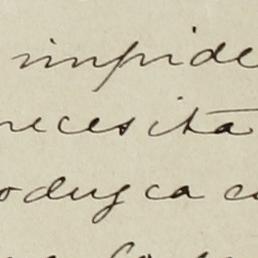 impide
necesita
oduzca c